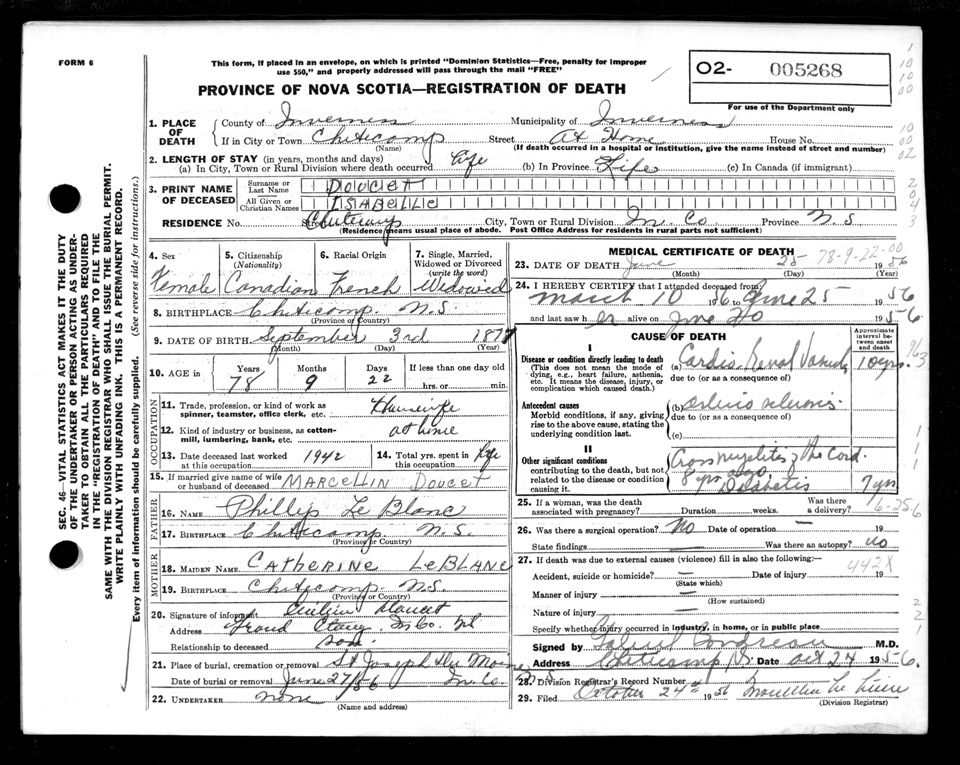 FORM 6
This form, if placed in an envelope, on which is printed "Dominion Statistics—Free, penalty for improper
use $50," and properly addressed will pass through the mail "FREE"
O2- 005268
For use of the Department only
PROVINCE OF NOVA SCOTIA—REGISTRATION OF DEATH
SEC. 46—VITAL STATISTICS ACT MAKES IT THE DUTY
OF THE UNDERTAKER OR PERSON ACTING AS UNDER-
TAKER TO OBTAIN ALL THE PARTICULARS REQUIRED
IN THE "REGISTRATION OF DEATH" AND TO FILE THE
SAME WITH THE DIVISION REGISTRAR WHO SHALL ISSUE THE BURIAL PERMIT.
WRITE PLAINLY WITH UNFADING INK. THIS IS A PERMANENT RECORD.
Every item of information should be carefully supplied. (See reverse side for instructions.)
1. PLACE OF DEATH County of Inverness Municipality of Inverness
If in City or Town Cheticamp Street At Home House No.
(Name) (If death occurred in a hospital or institution, give the name instead of street and number)
2. LENGTH OF STAY (in years, months and days)
(a) In City, Town or Rural Division where death occurred Life (b) In Province Life (c) In Canada (if immigrant)
3. PRINT NAME OF DECEASED Surname or Last Name DOUCET
All Given or Christian Names ISABELLE
RESIDENCE No. Street Cheticamp City, Town or Rural Division In. Co Province N S
(Residence means usual place of abode. Post Office Address for residents in rural parts not sufficient)
4. Sex Female
5. Citizenship (Nationality) Canadian
6. Racial Origin French
7. Single, Married, Widowed or Divorced (write the word) Widowed
8. BIRTHPLACE Cheticamp N.S.
(Province or Country)
9. DATE OF BIRTH September 3rd 1877
(Month) (Day) (Year)
10. AGE in Years 78 Months 9 Days 22 If less than one day old
hrs. or min.
OCCUPATION
11. Trade, profession, or kind of work as spinner, teamster, office clerk, etc. Housewife
12. Kind of industry or business, as cotton-mill, lumbering, bank, etc. at home
13. Date deceased last worked at this occupation 1942
14. Total yrs. spent in this occupation Life
15. If married give name of wife or husband of deceased MARCELLIN DOUCET
FATHER
16. NAME Phillip Le Blanc
17. BIRTHPLACE Cheticamp N.S.
(Province or Country)
MOTHER
18. MAIDEN NAME CATHERINE LEBLANC
19. BIRTHPLACE Cheticamp N.S.
(Province or Country)
20. Signature of informant Doucet
Address Grand Etang In Co. NS
Relationship to deceased son
21. Place of burial, cremation or removal St Joseph Du Moine
Date of burial or removal June 27/56 In. Co N S
22. UNDERTAKER none
(Name and address)
MEDICAL CERTIFICATE OF DEATH
78-9-22-00
23. DATE OF DEATH June 25 1956
(Month) (Day) (Year)
24. I HEREBY CERTIFY that I attended deceased from
March 10 1956 to June 25 1956
and last saw her alive on June 20 1956
CAUSE OF DEATH
Approximate interval between onset and death
I
Disease or condition directly leading to death
(This does not mean the mode of dying, e.g., heart failure, asthenia, etc. It means the disease, injury, or complication which caused death.)
(a) Cardio Renal Vascular 10 yrs.
due to (or as a consequence of)
Antecedent causes
Morbid conditions, if any, giving rise to the above cause, stating the underlying condition last.
(b)
due to (or as a consequence of)
(c)
II
Other significant conditions
contributing to the death, but not related to the disease or condition causing it.
of the Cord.
8 yrs ago
Diabetis 7 yrs
25. If a woman, was the death associated with pregnancy? Duration weeks. Was there a delivery?
26. Was there a surgical operation? No Date of operation — 19
State findings Was there an autopsy? no
27. If death was due to external causes (violence) fill in also the following:—
442X
Accident, suicide or homicide? — Date of injury 19
(State which)
Manner of injury —
(How sustained)
Nature of injury —
Specify whether injury occurred in industry, in home, or in public place
Signed by Gabriel Boudreau M.D.
Address Cheticamp N.S. Date Oct 24 1956.
28. Division Registrar's Record Number
29. Filed October 24th 1956
(Division Registrar)